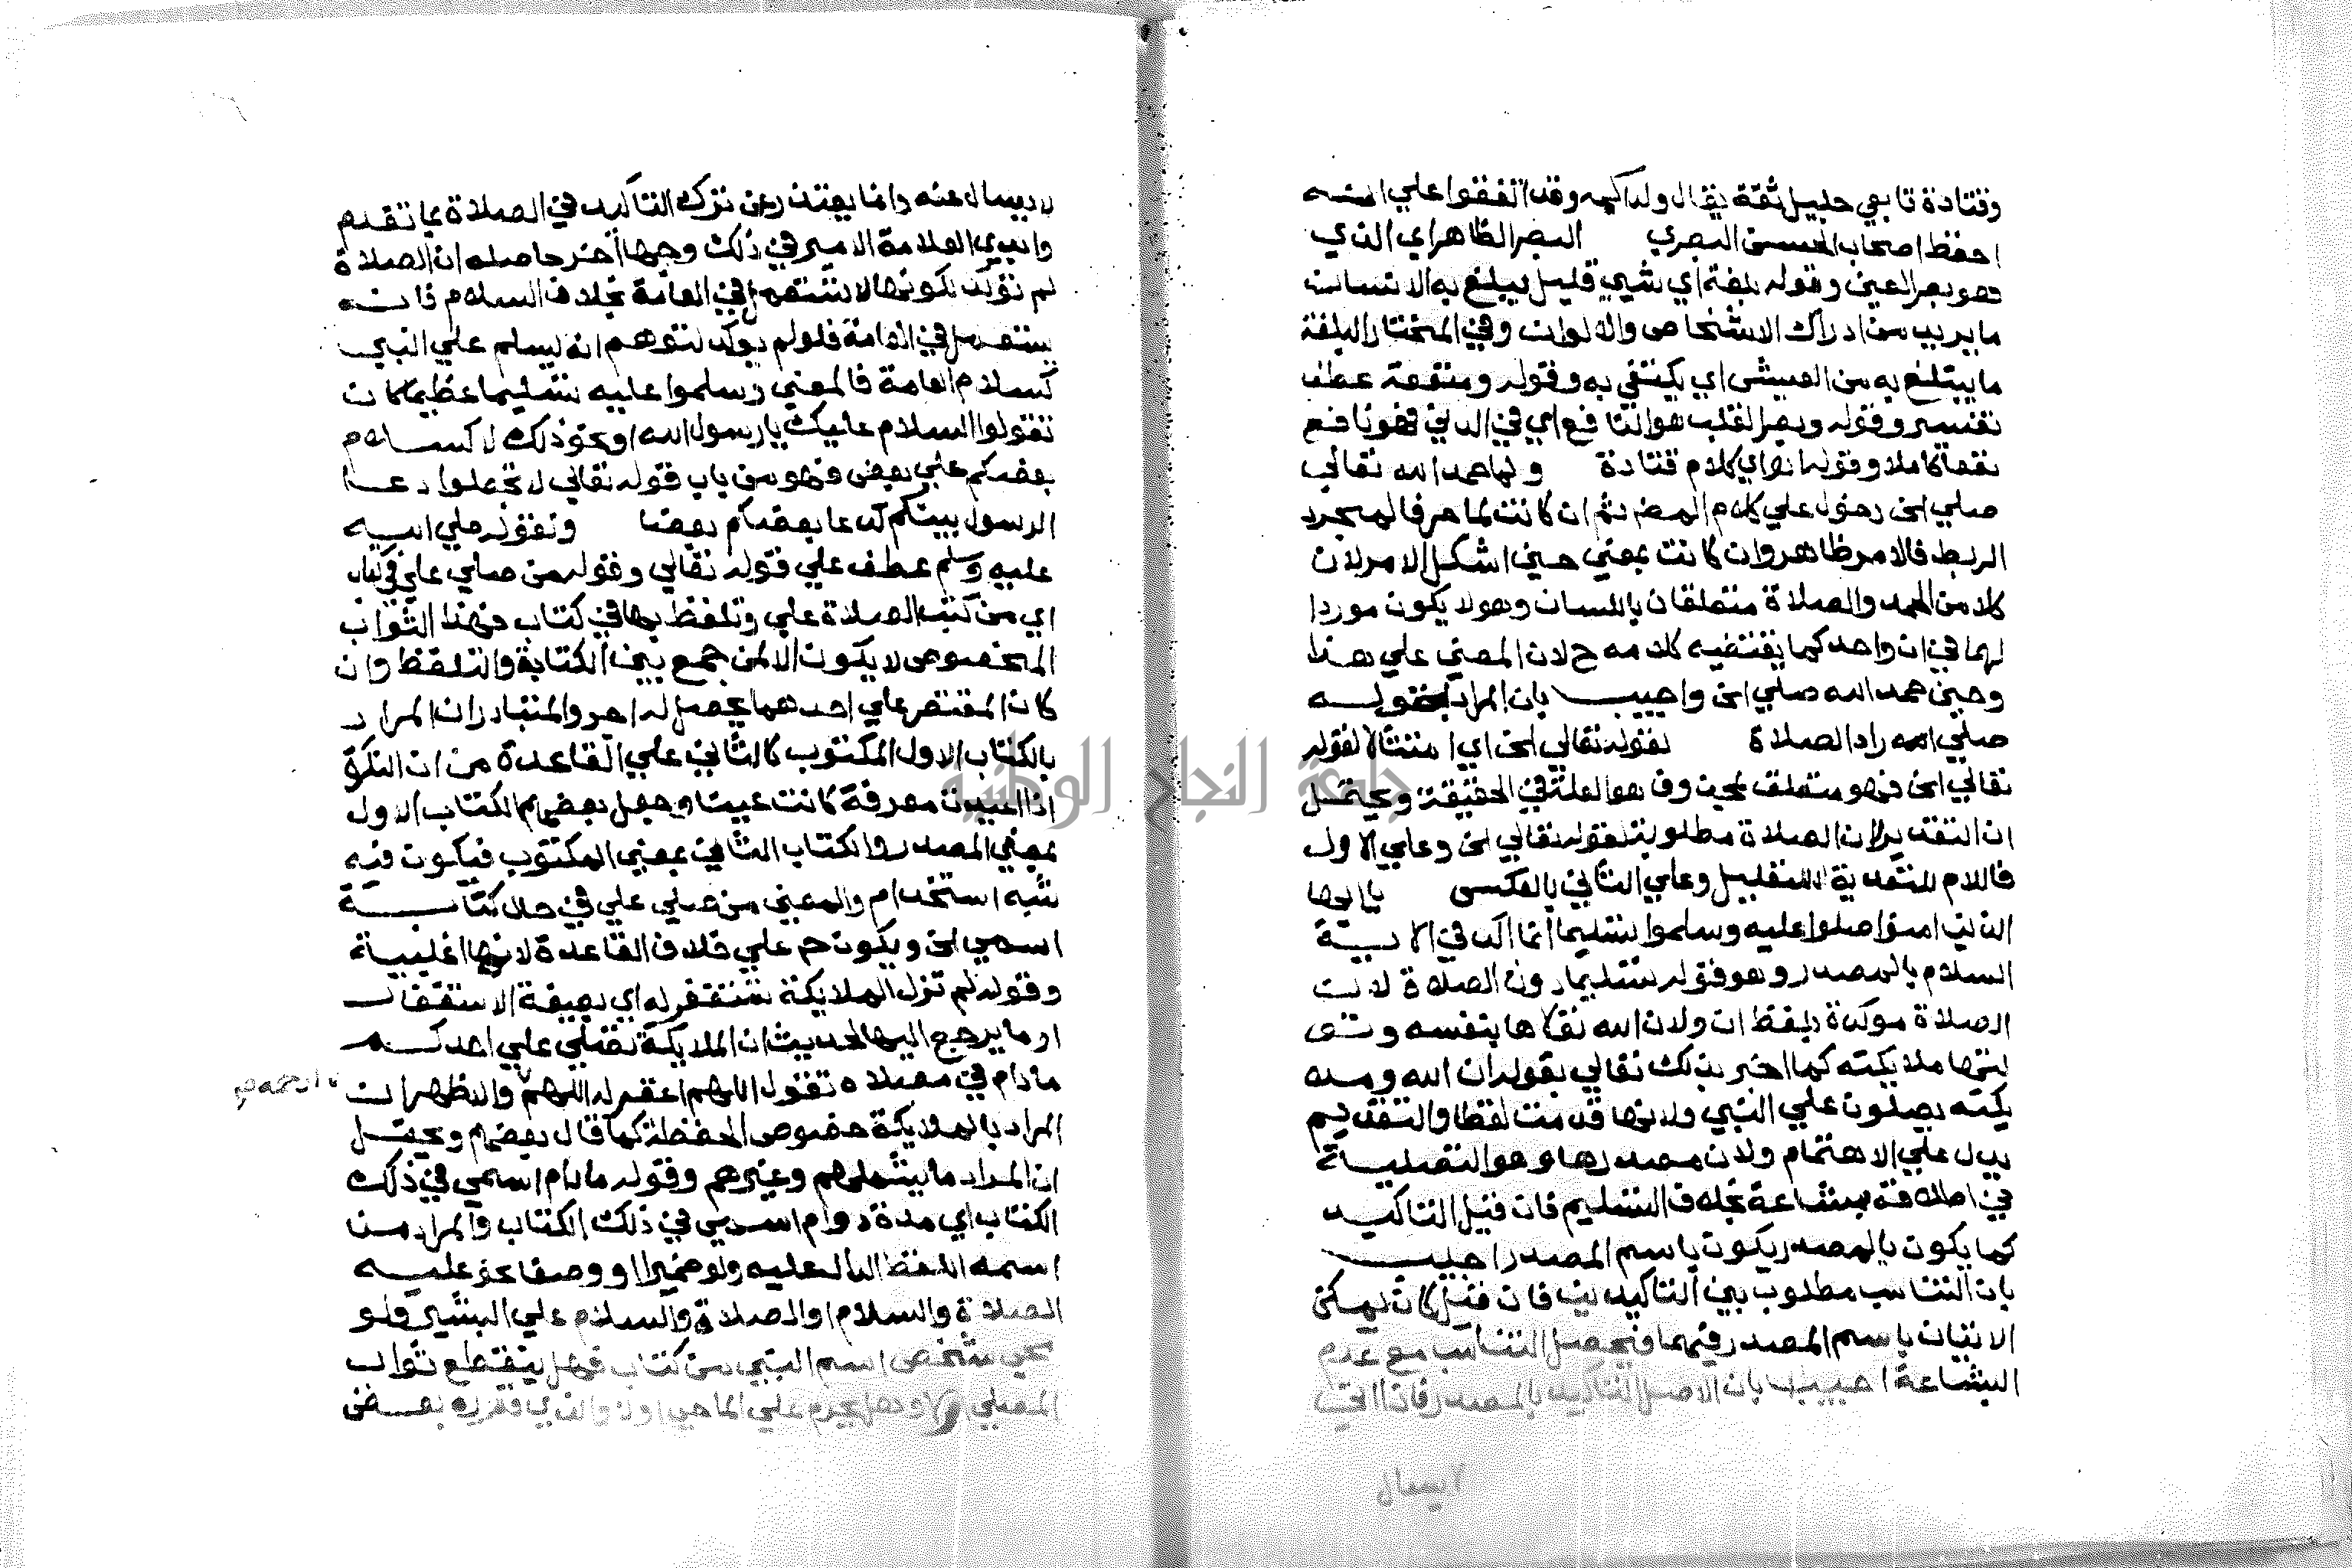 وقتادة تابعي جليل ثقة يقال ولد اكمه وقد اتفقوا علي انه
احفظ اصحاب الحسن البصري البصر الظاهر اي الذي
هو بصر العين وقوله بلغة اي شيي قليل يبلغ به الانسان
ما يريد من ادراك الاشخاص والالوان وفي المختار البلغة
ما يتبلغ به من العيش اي يكتفي به وقوله ومنفعة عطف
تفسير وقوله وبصر القلب هو النافع اي في الدين فهو نافع
نفعا كاملا وقوله انها اي كلام قتادة ولما حمد الله تعالي
صلي الخ دخول علي كلام المصنف ثم ان كانت لما حرفا لمجرد
الربط فالامر ظاهر وان كانت بمعني حين اشكل الامر لان
كلا من الحمد والصلاة متعلقان باللسان وهو لا يكون موردا
لهما في ان واحد كما يقتضيه كلامه ح لان المعني علي هذا
وحين حمد الله صلي الخ واجيب بان المراد بقوله
صلي الله راد الصلاة لقوله تعالي الخ اي امتثالا لقوله
تعالي الخ فهو متعلق بمحذوف هو العلة في الحقيقة ويحتمل
ان التقدير لان الصلاة مطلوبة لقوله تعالي الخ وعلي الاول
فاللام للتعدية للتقليل وعلي الثاني بالعكس يا ايها
الذين امنوا صلوا عليه وسلموا تسليما انما اكد في الاية
السلام بالمصدر وهو قوله تسليما دون الصلاة لان
الصلاة موكدة بلفظ ان ولان الله تولاها بنفسه وثني
بها ملايكته كما اخبر بذلك تعالي بقوله ان الله وملا
يكته يصلون علي النبي ولانها قدمت لفظا والتقديم
يدل علي الاهتمام ولان مصدرها وهو التصلية
في اطلاقه بشاعة بخلاف التسليم فان قيل التاكيد
كما يكون بالمصدر يكون باسم المصدر اجيب
بان التناسب مطلوب بين التاكيدين فان قيل كان يمكن
الاتيان باسم المصدر فيهما فيحصل التناسب مع عدم
البشاعة اجيب بان الاصل التاكيد بالمصدر فان اتي
لايسال
لا يسال عنه وانما يعتذر عن ترك التاكيد في الصلاة بما تقدم
وابدي العلامة الامير في ذلك وجها اخر حاصله ان الصلاة
لم توكد لكونها لا تستعمل في العامة بخلاف السلام فانه
يستعمل في العامة فلو لم يوكد لتوهم انه يسلم علي النبي
كسلام العامة فالمعني وسلموا عليه تسليما عظيما كان
تقولوا السلام عليك يا رسول الله او نحو ذلك لا كسلام
بعضكم علي بعض وهو من باب قوله تعالي لا تجعلوا دعا
الرسول بينكم كدعا بعضكم بعضا ولقوله صلي الله
عليه وسلم عطف علي قوله تعالي وقوله من صلي علي في كتاب
اي من كتب الصلاة علي وتلفظ بها في كتاب فهذا الثواب
المخصوص لا يكون الا لمن جمع بين الكتابة والتلفظ وان
كان المقتصر علي احدهما يحصل له اجر والمتبادر ان المراد
بالكتاب الاول المكتوب كالثاني علي القاعدة من ان النكرة
اذا اعيدت معرفة كانت عينا وجعل بعضهم الكتاب الاول
بمعني المصدر والكتاب الثاني بمعني المكتوب فيكون فيه
شبه استخدام والمعني من صلي علي في حال كتابة
اسمي الخ ويكون ح علي خلاف القاعدة لانها اغلبية
وقوله لم تزل الملايكة تستغفر له اي بصيغة الاستغفار
او ما يرجع اليها لحديث ان الملايكة تصلي علي احدكم
مادام في مصلاه تقول اللهم اغفر له اللهم والظهر ان
المراد بالملايكة خصوص الحفظة كما قال بعضهم ويحتمل
ان المراد ما يشملهم وغيرهم وقوله مادام اسمي في ذلك
الكتاب اي مدة دوام اسمي في ذلك الكتاب والمراد من
اسمه اللفظ الدال عليه ولو ضميرا او وصفا نحو عليه
الصلاة والسلام او الصلاة والسلام علي البشير فلو